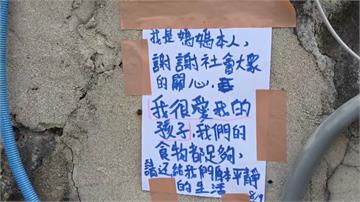 我是媽媽本人,
謝謝社會大眾
的關心.
我很愛我的
孩子,我們的
食物都足夠,
請还給我們平靜
的生活
8/9